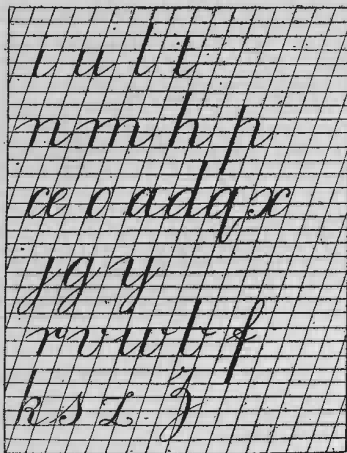 i u l t
n m h p
c e o a d q x
j g y
r v w b f
k s z z